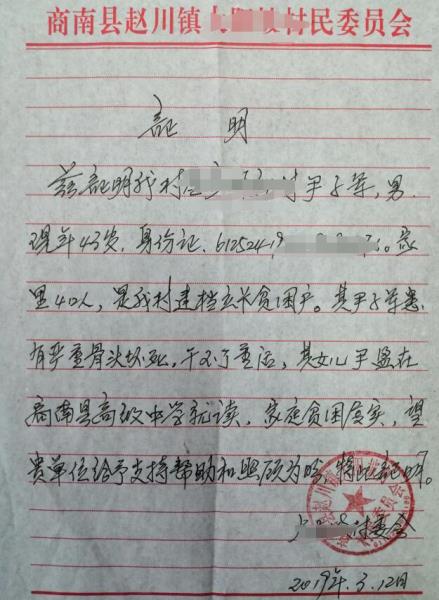 商南县赵川镇 村民委员会
证 明
兹证明我村 村尹子军，男，
现年43岁，身份证，61252419 。家
里4口人，是我村建档立卡贫困户。其尹子军患
有严重骨头坏死，干不了重活，其女儿尹 在
商南县高级中学就读，家庭贫困属实，望
贵单位给予支持帮助和照顾为盼，特此证明。
村委会
2019年.3.12日